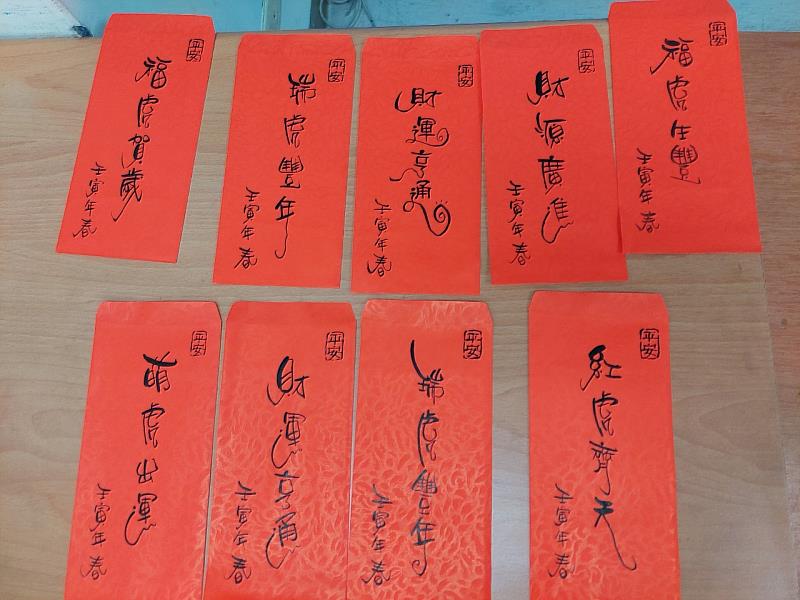 平安
福虎賀歲
壬寅年春
平安
瑞虎豐年
壬寅年春
平安
財運亨通
壬寅年春
平安
財源廣進
壬寅年春
平安
福虎生豐
壬寅年春
平安
萌虎出運
壬寅年春
平安
財運亨通
壬寅年春
平安
瑞虎豐年
壬寅年春
平安
紅虎齊天
壬寅年春